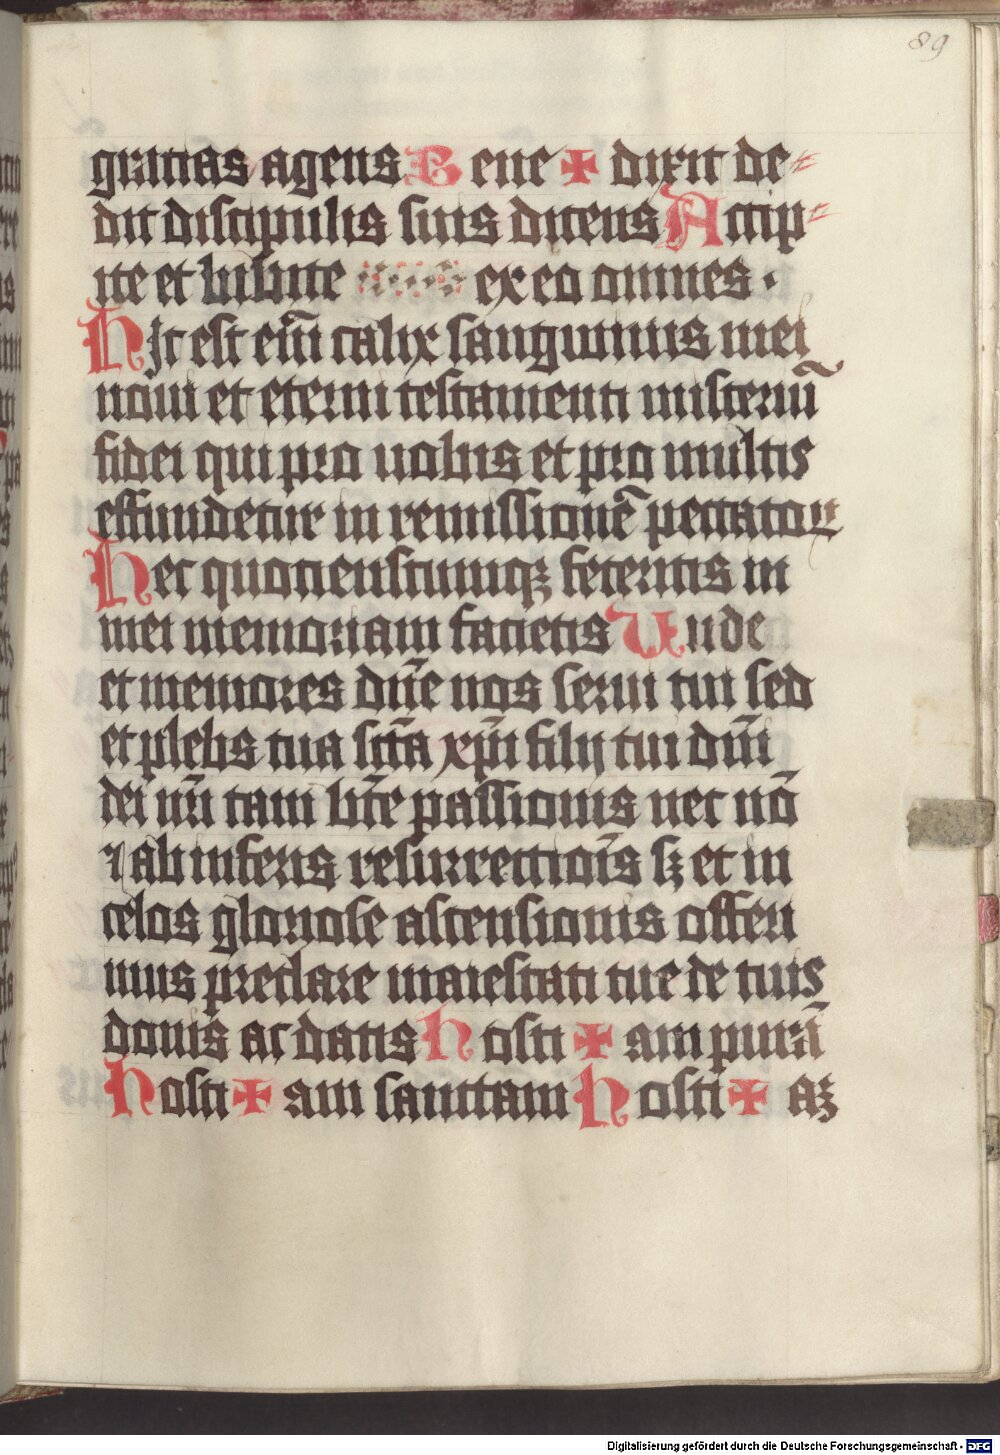 89
gratias agens Bene ✠ dixit de⸗
dit discipulis suis dicens Accip⸗
ite et bibite ex eo omnes ·
Hjc est em̄ calix sanguinis mei
noui et eterni testamenti misteriū
fidei qui pro uobis et pro multis
effundetur in remissionē peccatoꝝ
Hec quotienscumqꝫ feceritis in
mei memoriam facietis Unde
et memores dn̄e nos serui tui sed
et plebs tua sc̄ta xp̄i filij tui dn̄i
dei nr̄i tam bt̄e passionis nec nō
⁊ ab inferis resurrectiōis sꝫ et in
celos gloriose ascensionis offeri
mus preclare maiestati tue de tuis
donis ac datis Hosti ✠ am purā
Hosti ✠ am sanctam Hosti ✠ aꝫ
Digitalisierung gefördert durch die Deutsche Forschungsgemeinschaft - DFG